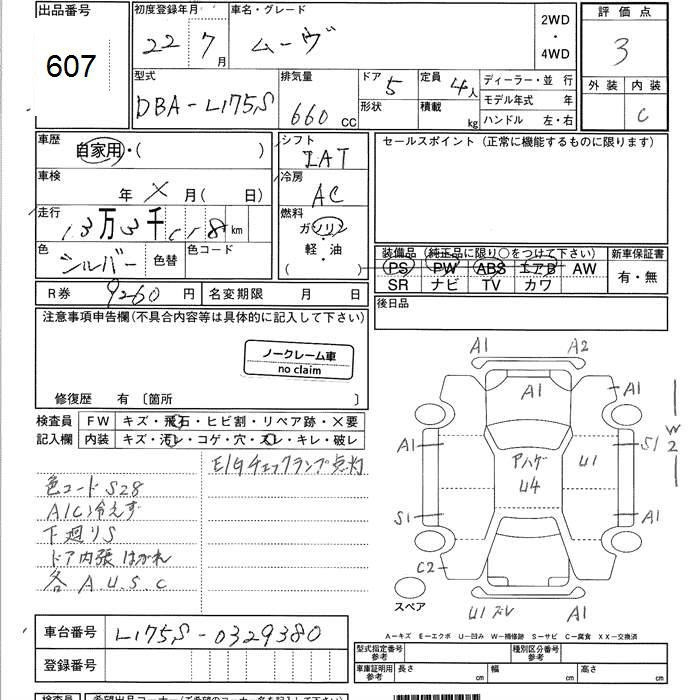 出品番号
607
初度登録年月
22 7月
車名・グレード
ムーヴ
2WD
・
4WD
評価点
3
外装 内装
C
型式
DBA-L175S
排気量
660 CC
ドア 5
形状
定員 4人
積載 kg
ディーラー・並 行
モデル年式 年
ハンドル 左・右
車歴
自家用・( )
車検
年 × 月( 日)
走行
13万3千 km
色
シルバー
色替
色コード
シフト
IAT
冷房
AC
燃料
ガソリン
・
軽・油
( )
セールスポイント(正常に機能するものに限ります)
装備品(純正品に限り○をつけて下さい)
PS PW ABS エアB AW
SR ナビ TV カワ
新車保証書
有・無
後日品
R券 9260 円
名変期限 月 日
注意事項申告欄(不具合内容等は具体的に記入して下さい)
ノークレーム車
no claim
修復歴 有 〔箇所 〕
検査員
記入欄
FW キズ・飛石・ヒビ割・リペア跡・×要
内装 キズ・汚レ・コゲ・穴・スレ・キレ・破レ
E/Gチェックランプ点灯
色コード S28
A/C冷えず
下廻りS
ドア内張はがれ
各 A.U.S.C
A1 A2
A1 A1
W2
A1 S1
アハゲ U1
U4
S1 A1
C2
スペア
U1ズレ A1
A－キズ E－エクボ U－凹み W－補修跡 S－サビ C－腐食 XX－交換済
車台番号 L175S-0329380
登録番号
型式指定番号
参考
種別区分番号
参考
車庫証明用
参考
長さ cm
幅 cm
高さ cm
検査員
希望出品コーナー(ご希望のコーナー名を記入